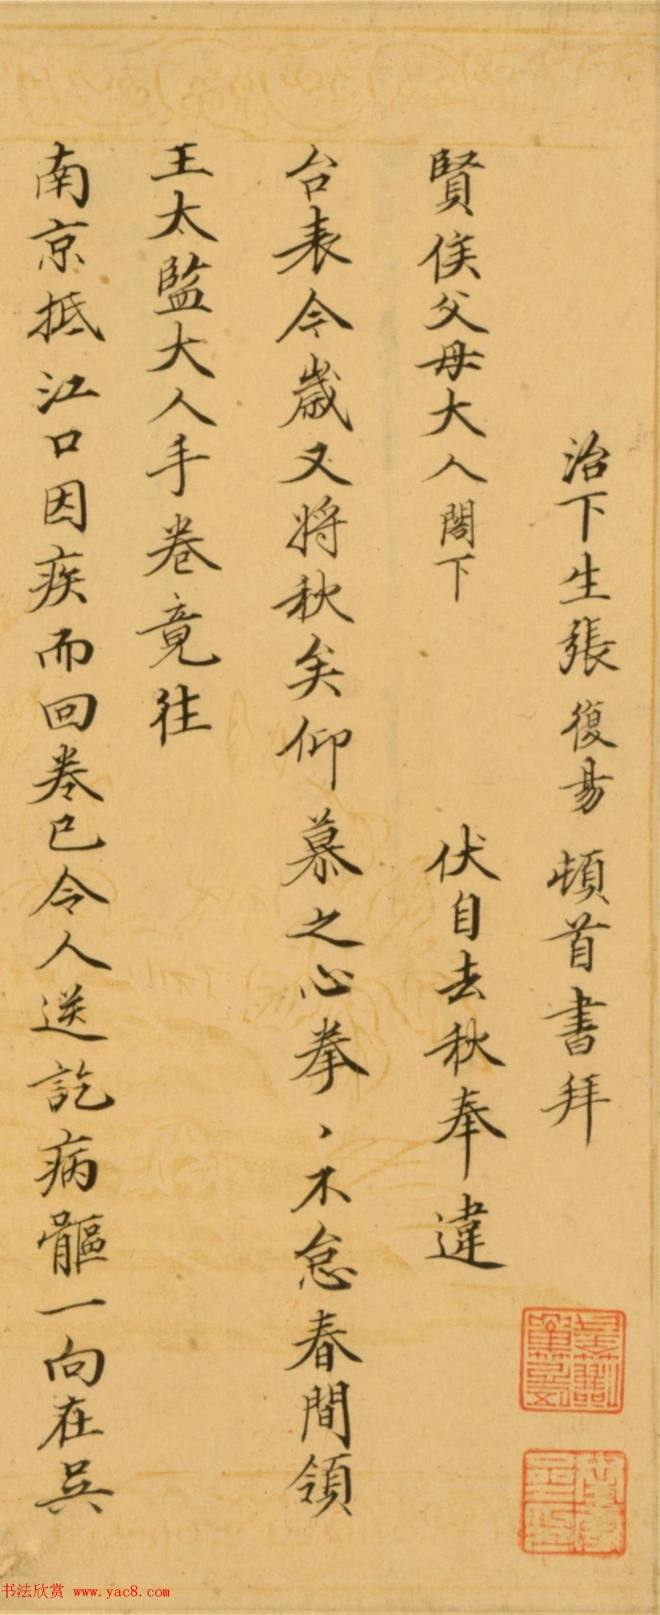 治下生張復昜頓首書拜
賢侯父母大人閣下 伏自去秋奉違
台表今歲又將秋矣仰慕之心拳〻不怠春間領
王太監大人手卷竟往
南京抵江口因疾而回卷已令人送訖病軀一向在吳
书法欣赏 www.yac8.com